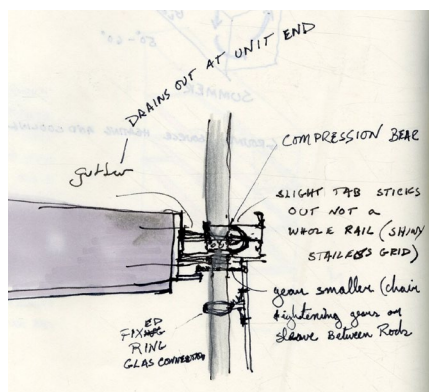 DRAINS OUT AT UNIT END
gutter
COMPRESSION BEAR
SLIGHT TAB STICKS
OUT NOT A
WHOLE RAIL (SHINY
STAILESS GRID)
gear smaller (chair
tightening gears or
sleave Between Rods
FIXED
RING
GLAS CONNECTION
50°-60°
SUMMER